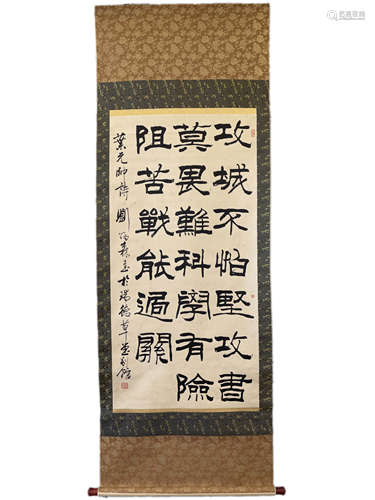 攻城不怕堅攻書
莫畏難科學有險
阻苦戰能過關
葉元帥詩 劉炳森 於 草堂